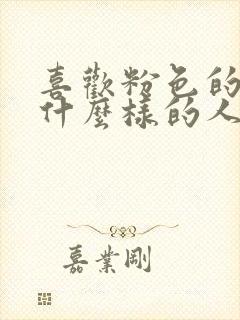 喜歡粉色的
什麼樣的人
嘉業剛